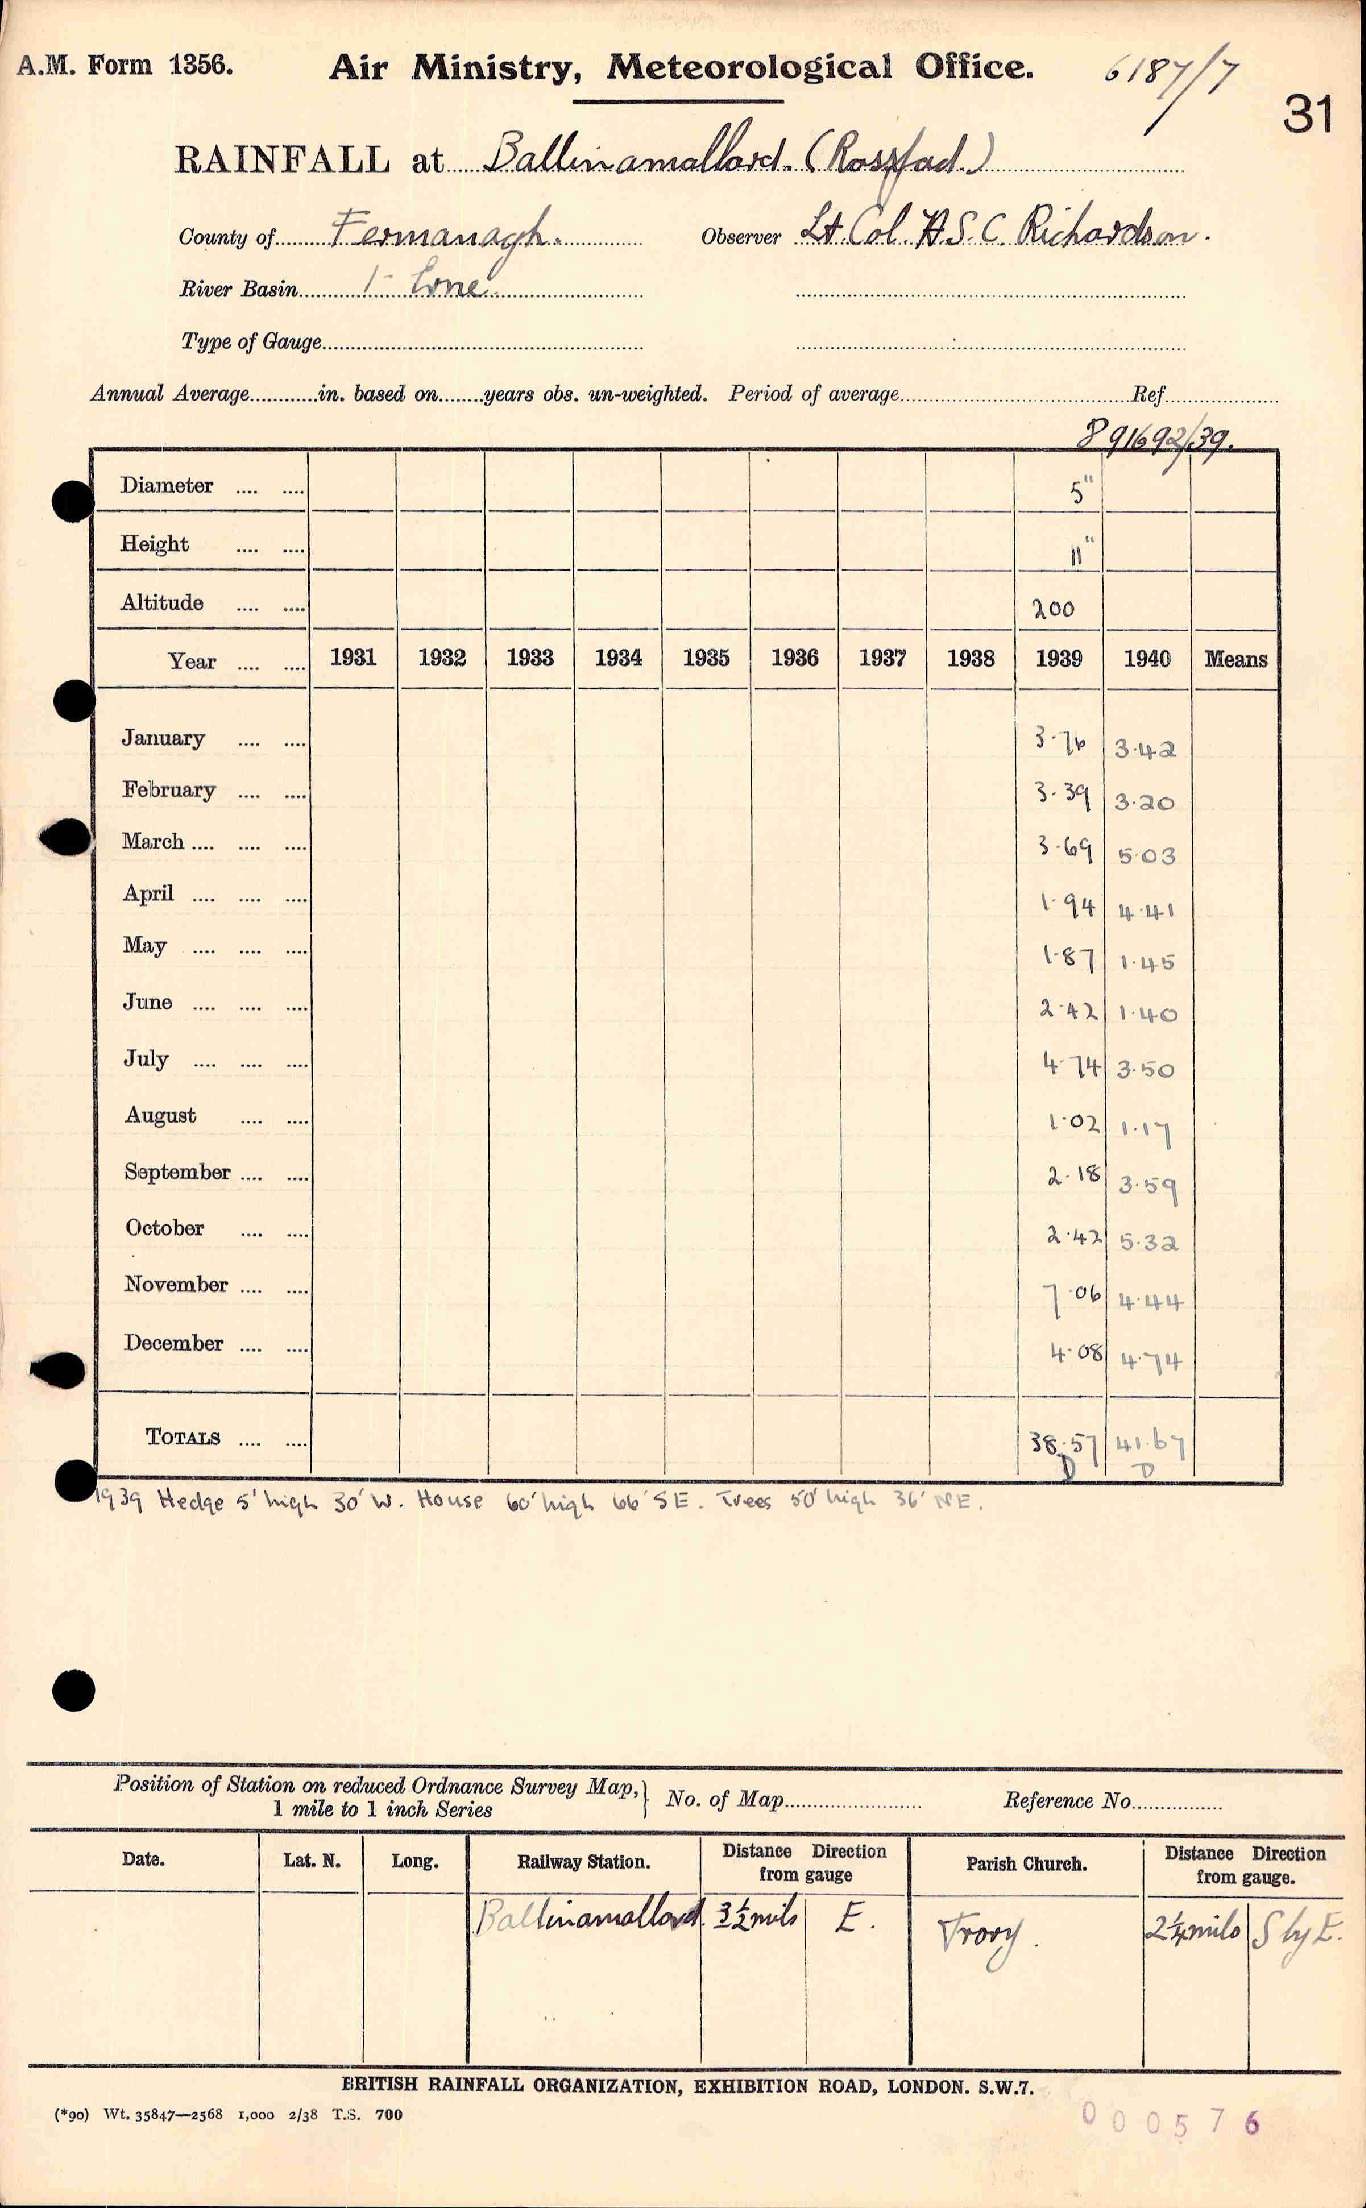 A.M. Form 1356.
Air Ministry, Meteorological Office.
6187/7
31
RAINFALL at Ballinamallard. (Rossfad.)
County of Fermanagh.
Observer Lt. Col. H.S.C. Richardson.
River Basin 1- Erne.
Type of Gauge
Annual Average in. based on years obs. un-weighted. Period of average Ref
891692/39.
Diameter 5"
Height 11"
Altitude 200
Year 1931 1932 1933 1934 1935 1936 1937 1938 1939 1940 Means
January 3.76 3.42
February 3.39 3.20
March 3.69 5.03
April 1.94 4.41
May 1.87 1.45
June 2.42 1.40
July 4.74 3.50
August 1.02 1.17
September 2.18 3.59
October 2.42 5.32
November 7.06 4.44
December 4.08 4.74
TOTALS 38.57 41.67
D D
1939 Hedge 5' high 30' W. House 60' high 66' SE. Trees 50' high 36' NE.
Position of Station on reduced Ordnance Survey Map, 1 mile to 1 inch Series
No. of Map
Reference No.
Date. Lat. N. Long. Railway Station. Distance Direction from gauge Parish Church. Distance Direction from gauge.
Ballinamallard 3½ mils E. Trory. 2¼ mils S by E.
BRITISH RAINFALL ORGANIZATION, EXHIBITION ROAD, LONDON. S.W.7.
(*90) Wt. 35847—2568 1,000 2/38 T.S. 700
000576